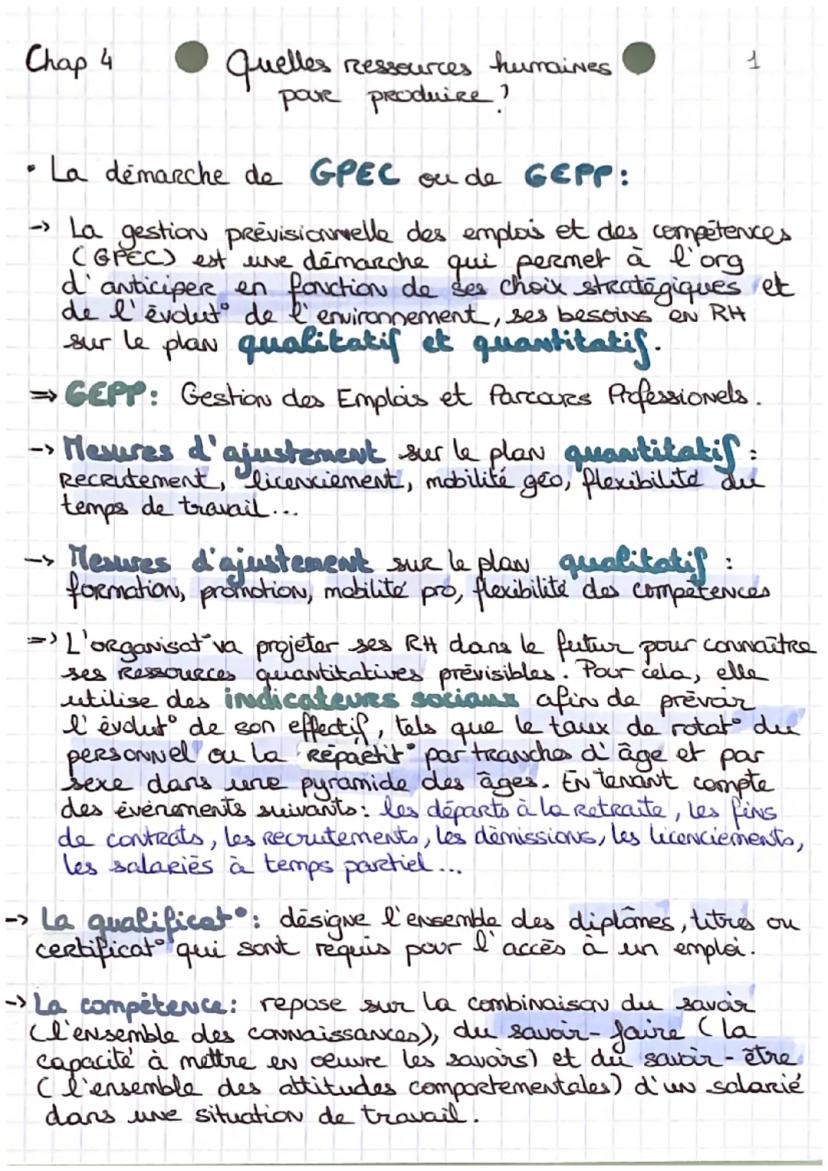 Chap 4 Quelles ressources humaines 1
pour produire ?
• La démarche de GPEC ou de GEPP :
-> La gestion prévisionnelle des emplois et des compétences
(GPEC) est une démarche qui permet à l'org
d'anticiper en fonction de ses choix stratégiques et
de l'évolut° de l'environnement, ses besoins en RH
sur le plan qualitatif et quantitatif.
=> GEPP : Gestion des Emplois et Parcours Professionels.
-> Mesures d'ajustement sur le plan quantitatif :
Recrutement, licenciement, mobilité géo, flexibilité du
temps de travail...
-> Mesures d'ajustement sur le plan qualitatif :
formation, promotion, mobilité pro, flexibilité des compétences
=> L'organisat° va projeter ses RH dans le futur pour connaître
ses Ressources quantitatives prévisibles. Pour cela, elle
utilise des indicateurs sociaux afin de prévoir
l'évolut° de son effectif, tels que le taux de rotat° du
personnel ou la répartit° par tranches d'âge et par
sexe dans une pyramide des âges. En tenant compte
des événements suivants : les départs à la retraite, les fins
de contrats, les recrutements, les démissions, les licenciements,
les salariés à temps partiel...
-> La qualificat° : désigne l'ensemble des diplômes, titres ou
certificat° qui sont requis pour l'accès à un emploi.
-> La compétence : repose sur la combinaison du savoir
(l'ensemble des connaissances), du savoir-faire (la
capacité à mettre en oeuvre les savoirs) et du savoir-être
(l'ensemble des attitudes comportementales) d'un salarié
dans une situation de travail.